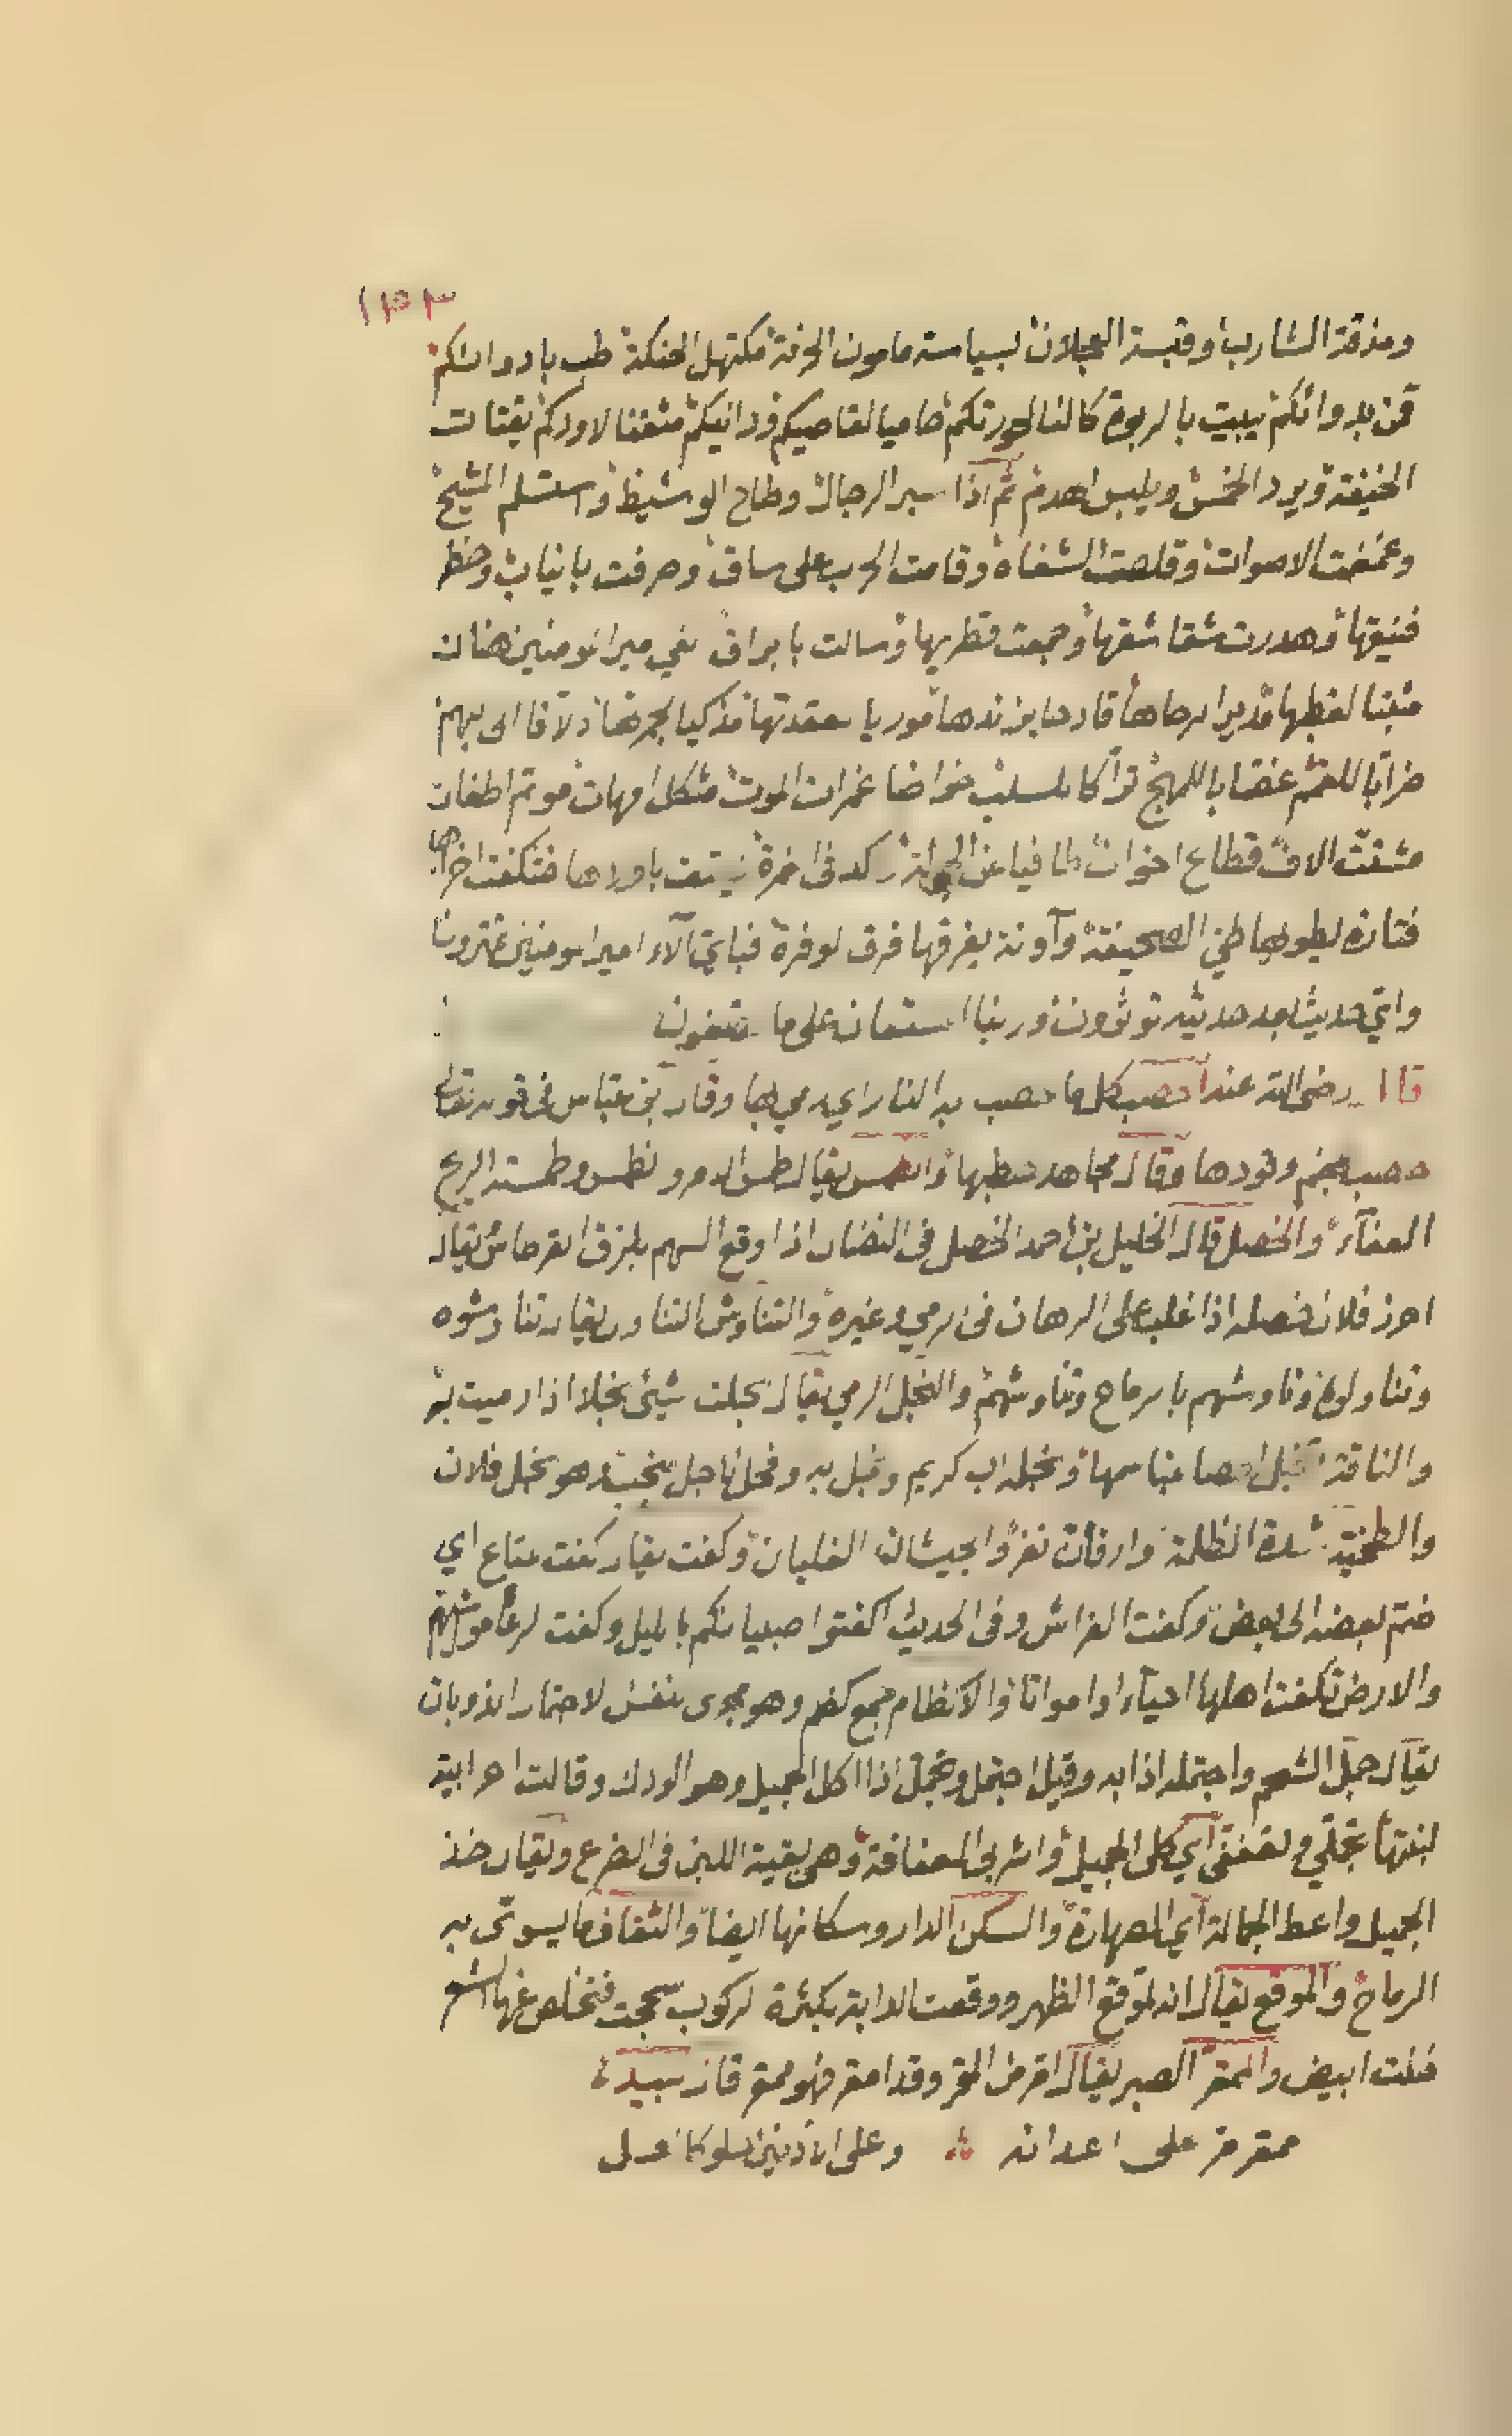 ١٣٣
ومذقة الشارب وقبسة العجلان لسياسة مامون الحرفة مكتهل الحنكة طب بادوائكم
قمن بدوائكم يبيت بالربوة كالئا لحوزتكم حاميا لقاصيكم ودانيكم مثقفا لاودكم يقتات
الخنيفة ويرد الخمس ويلبس الهدم ثم اذا سبر الرجال وطاح الوشيظ واستسلم المشيح
وغمغمت الاصوات وقلصت الشفاه وقامت الحرب على ساق وصرفت بانياب وخطر
فنيقها وهدرت شقاشقها وجمعت قطريها وسالت بابراق لفي امير المومنين هنالك
مثبتا لقطبها مديرا لرحاها قادحا بزندها موريا مذكيا لجمرها دلافا الى البهم
ضرابا للقمم غصابا للمهج تراكا للسلب خواضا غمرات الموت مثكل امهات موتم اطفال
مشتت الاف قطاع اخوات طافيا عن الجولة راكدا في الغمرة يهتف باولاها فتنكفت اخراها
فتارة يطويها طي الصحيفة وآونة يفرقها فرق الوفرة فباي آلاء امير المومنين تمترون
واي حديث بعد حديثه توثرون وربنا المستعان على ما تصفون
قال رضي الله عنه الحصب كل ما حصب به النار اي يرمي بها وقال ابن عباس في قوله تعالى
حصب جهنم وقودها وقال مجاهد حطبها والطمس يقال طمس الامر وانطمس وطمسته الريح
العفاء والخصل قال الخليل بن احمد الخصل في النضال اذا وقع السهم بلزق القرطاس يقال
احرز فلان خصله اذا غلب على الرهان في الرمي وغيره والتناوش التناول يقال تناوشوه
وتناولوه وناوشهم بالرماح وتناوشهم والنجل الرمي يقال نجلت بشيئ نجلا اذا رميت به
والناقة تنجل الحصا بمناسمها ونجله اب كريم ونجل به وفحل ناجل منجب وهو نجل فلان
والطخية شدة الظلمة وارفأن نفر والجيشان الغليان وكفت يقال كفت المتاع اي
ضم بعضه الى بعض وكفت الفراش وفي الحديث اكفتوا صبيانكم بالليل وكفت الرعاة مواشيهم
والارض تكفت اهلها احياء او امواتا والاكظام جمع كظم وهو مجرى النفس والاجتمال الذوبان
يقال جمل الشحم واجتمله اذابه وقيل اجتمل وتجمل اذا اكل الجميل وهو الودك وقالت اعرابية
لبنتها تجملي وتعففي اي كلي الجميل واشربي العفافة وهي بقية اللبن في الضرع ويقال خذ
الجميل واعط الجمالة اي الصهارة والسكن الدار وسكانها ايضا والثقاف ما يسوى به
الرماح والموقع يقال انه لموقع الظهر ووقعت الدابة بكثرة الركوب سحجت فتحاص عنها الشعر
فنبت ابيض والممقر الصبر يقال امر من المقر وقد امقر فهو ممقر قال لبيد
ممقر مر على اعدائه وعلى الادنين حلو كالعسل